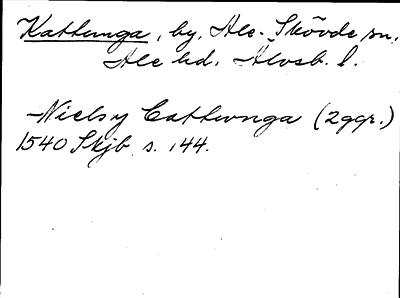 Kattunga, by, Ale-Skövde sn,
Ale hd. Älvsb. l.
Nielsy Cattunga (2ggr.)
1540 Skjb s. 144.